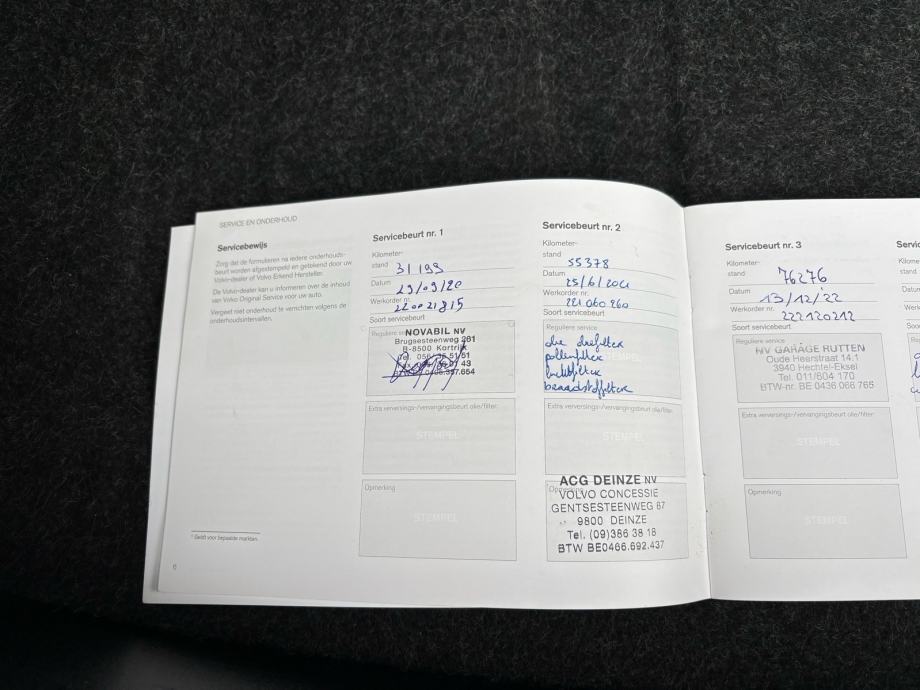 SERVICE EN ONDERHOUD
Servicebewijs
Zorg dat de formulieren na iedere onderhouds-
beurt worden afgestempeld en getekend door uw
Volvo-dealer of Volvo Erkend Hersteller.
De Volvo-dealer kan u informeren over de inhoud
van Volvo Original Service voor uw auto.
Vergeet niet onderhoud te verrichten volgens de
onderhoudsintervallen.
* Geldt voor bepaalde markten.
6
Servicebeurt nr. 1
Kilometer-
stand 31199
Datum 29/09/20
Werkorder nr.
Soort servicebeurt
Reguliere
NOVABIL NV
Brugsesteenweg
B-8500 Kortrijk
Extra verversings-/vervangingsbeurt olie/filter:
STEMPEL
Opmerking
STEMPEL
Servicebeurt nr. 2
Kilometer-
stand 55378
Datum
Werkorder nr. 221060260
Soort servicebeurt
Reguliere service
STEMPEL
pollenfilter
luchtfilter
brandstoffilter
Extra verversings-/vervangingsbeurt olie/filter:
STEMPEL
Opmerking
ACG DEINZE NV
VOLVO CONCESSIE
GENTSESTEENWEG 87
9800 DEINZE
Tel. (09)386 38 18
BTW BE0466.692.437
Servicebeurt nr. 3
Kilometer-
stand 76276
Datum 13/12/22
Werkorder nr. 222120212
Soort servicebeurt
Reguliere service
NV GARAGE RUTTEN
Oude Heerstraat 14.1
3940 Hechtel-Eksel
Tel. 011/604 170
BTW-nr. BE 0436 066 765
Extra verversings-/vervangingsbeurt olie/filter:
STEMPEL
Opmerking
STEMPEL